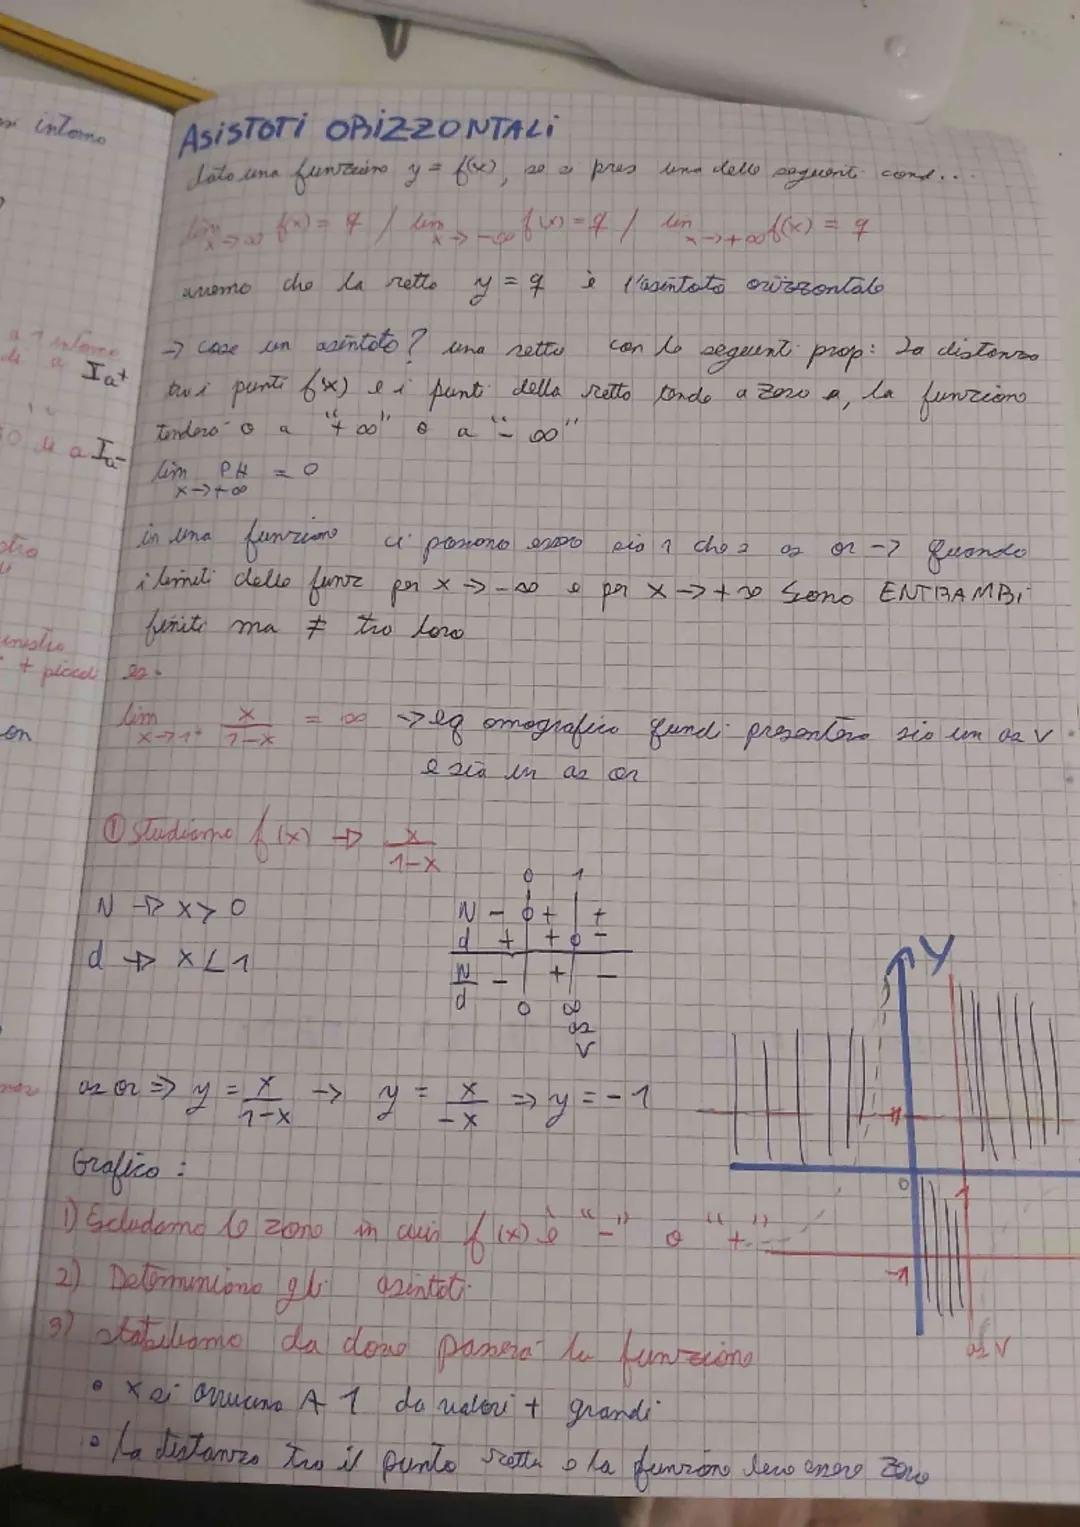 ASiSTOTi ORiZZONTALi
data una funzione y = f(x), se si pres una delle seguenti cond...
lim x→∞ f(x) = q / lim x→-∞ f(x) = q / lim x→+∞ f(x) = q
avremo che la retta y = q è l'asintoto orizzontale
→ cose un asintoto? una retta con le seguenti prop: la distanza
tra i punti f(x) e i punti della retta tende a zero e, la funzione
tenderà o a "+∞" o a "-∞"
lim x→+∞ PH = 0
in una funzione ci possono essere sia 1 che 2 as or → quando
i limiti delle funz per x→-∞ e per x→+∞ sono ENTRAMBi
finiti ma ≠ tra loro
es.
lim x→1+ x/1-x = ∞ → eq omografica quindi presenterà sia un as V
e sia un as or
① studiamo f(x) → x/1-x
N → x > 0
d → x < 1
0 1
N - 0 + | +
d + + 0 -
N/d - + -
0 ∞
as
V
as or ⇒ y = x/1-x → y = x/-x ⇒ y = -1
Grafico:
1) Escludiamo le zone in cui f(x) è "-" o "+"
2) Determiniamo gli asintoti
3) stabiliamo da dove passerà la funzione
• x si avvicina A 1 da valori + grandi
• La distanza tra il punto retta e la funzione deve essere zero
Y
0
1
-1
as V
intorno
a
intorno
di a Ia+
di a Ia-
+ piccoli